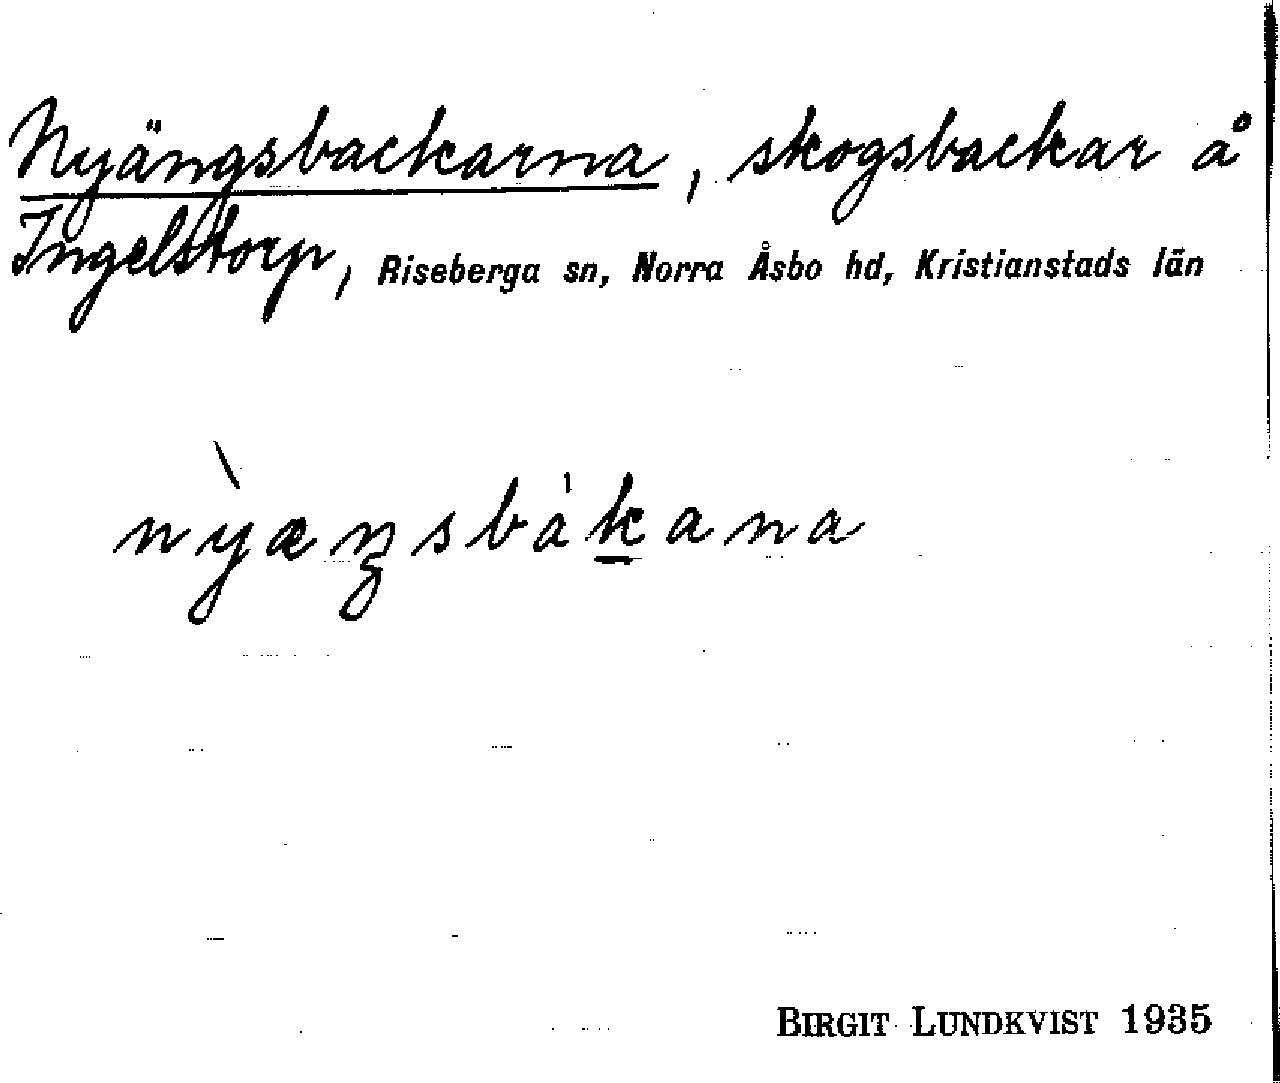 Nyängsbackarna, skogsbackar å
Ingelstorp, Riseberga sn, Norra Åsbo hd, Kristianstads län
nỳæŋsbákana
BIRGIT LUNDKVIST 1935